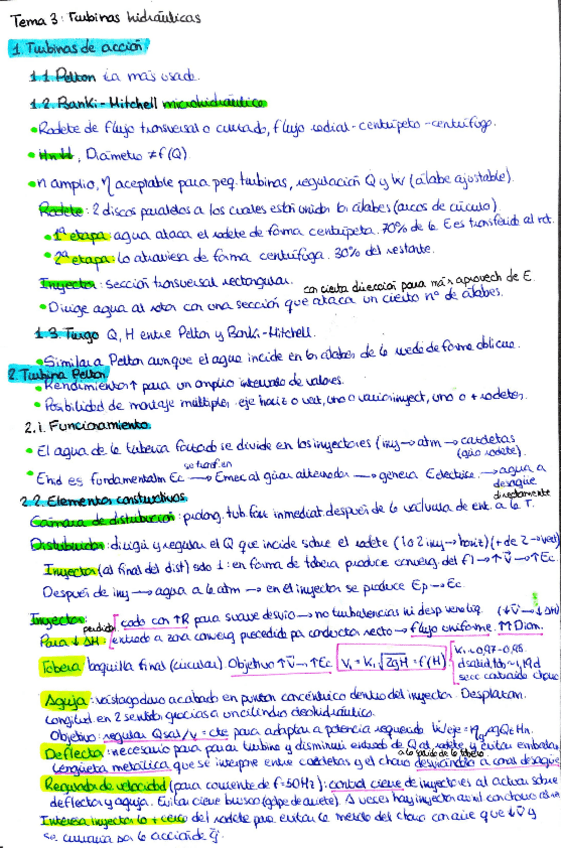 Tema 3: Turbinas hidráulicas
1. Turbinas de acción
1.1. Pelton la más usada.
1.2. Banki-Mitchell microhidráulica
• Rodete de flujo transversal o cruzado, flujo radial-centrípeto-centrífugo.
• Diámetro ≠ f(Q).
• n amplio, η aceptable para peq. turbinas, regulación Q y W (álabe ajustable).
Rodete: 2 discos paralelos a los cuales están unidos los álabes (arcos de círculo)
• 1ª etapa: agua ataca el rodete de forma centrípeta. 70% de la E es transferido al rot.
• 2ª etapa: lo atraviesa de forma centrífuga. 30% del restante.
Inyector: sección transversal rectangular. con cierta dirección para más aprovech de E.
• Dirige agua al rotor con una sección que ataca un cierto nº de álabes.
1.3. Turgo Q, H entre Pelton y Banki-Mitchell.
• Similar a Pelton aunque el agua incide en los álabes de la rueda de forma oblicua.
2. Turbina Pelton
• Rendimiento ↑ para un amplio intervalo de valores.
• Posibilidad de montaje múltiple: eje horiz o vert, uno o varios inyect, uno o + rodetes.
2.1. Funcionamiento
• El agua de la tubería forzada se divide en los inyectores (iny → atm → cazoletas
(gira rodete).
• Enid es fundamentalm Ec → se transf. en Emec al girar alternador → genera Eeléctrica. → agua a
desagüe
directamente
2.2. Elementos constructivos
Cámara de distribución: prolong. tub. forz inmediat. después de la válvula de ent. a la T.
Distribuidor: dirigir y regular el Q que incide sobre el rodete (1 o 2 iny → horiz) (+ de 2 → vert)
Inyector (al final del dist) solo 1: en forma de tobera produce converg. del fl → ↑V → ↑Ec.
Después de iny → agua a la atm → en el inyector se produce Ep → Ec.
Inyector: codo con ↑R para suave desvío → no turbulencias ni desprend liq. (↓V → ↓ΔH)
Para ↓ΔH: perdidas entrada a zona converg precedida por conducto recto → flujo uniforme. ↑↑ Diam.
Tobera: boquilla final (circular). Objetivo ↑V → ↑Ec V₁ = K₁√2gH = f(H) K₁ ≈ 0,97-0,98.
secc contraída chorro
Aguja: vástago duro acabado en punzón concéntrico dentro del inyector. Desplazam.
longitud en 2 sentidos gracias a un cilindro oleohidráulico.
Objetivo: regular Qsal / V = cte para adaptar a potencia requerida Weje = ηρgQtHn.
Deflector: necesario para parar turbina y disminuir entrada de Q al rodete, y evitar embalar
a la salida de la tobera
Lengüeta metálica que se interpone entre cazoletas y el chorro desviándolo a canal desagüe
Regulador de velocidad (para corriente de f=50Hz): control cierre de inyectores al actuar sobre
deflector y aguja. Evitar cierre brusco (golpe de ariete). A veces hay inyector
Interesa inyector lo + cerca del rodete para evitar la mezcla del chorro con aire que ↓V y
se curvaría por la acción de g.